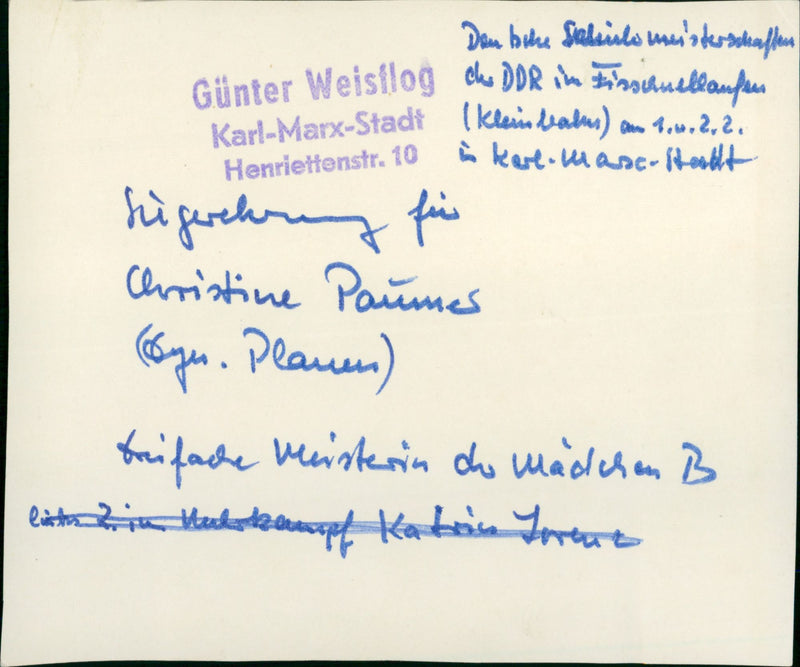 Deutsche Schülermeisterschaften
der DDR im Eisschnellaufen
(Kleinbahn) am 1. u. 2. 2.
in Karl-Marx-Stadt
Günter Weisflog
Karl-Marx-Stadt
Henriettenstr. 10
Siegerehrung für
Christine
(Dyn. Plauen)
dreifache Meisterin der Mädchen B
links 2. im Mehrkampf Katrin Lorenz